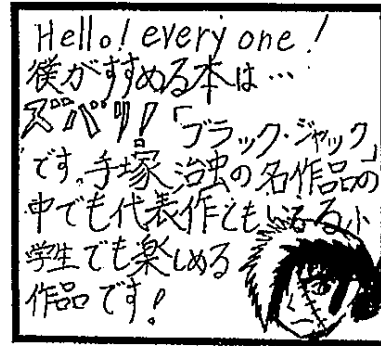 Hello! every one!
僕がすすめる本は…
ズバリ!「ブラック・ジャック」
です。手塚治虫の名作品の
中でも代表作ともいえる小
学生でも楽しめる
作品です!